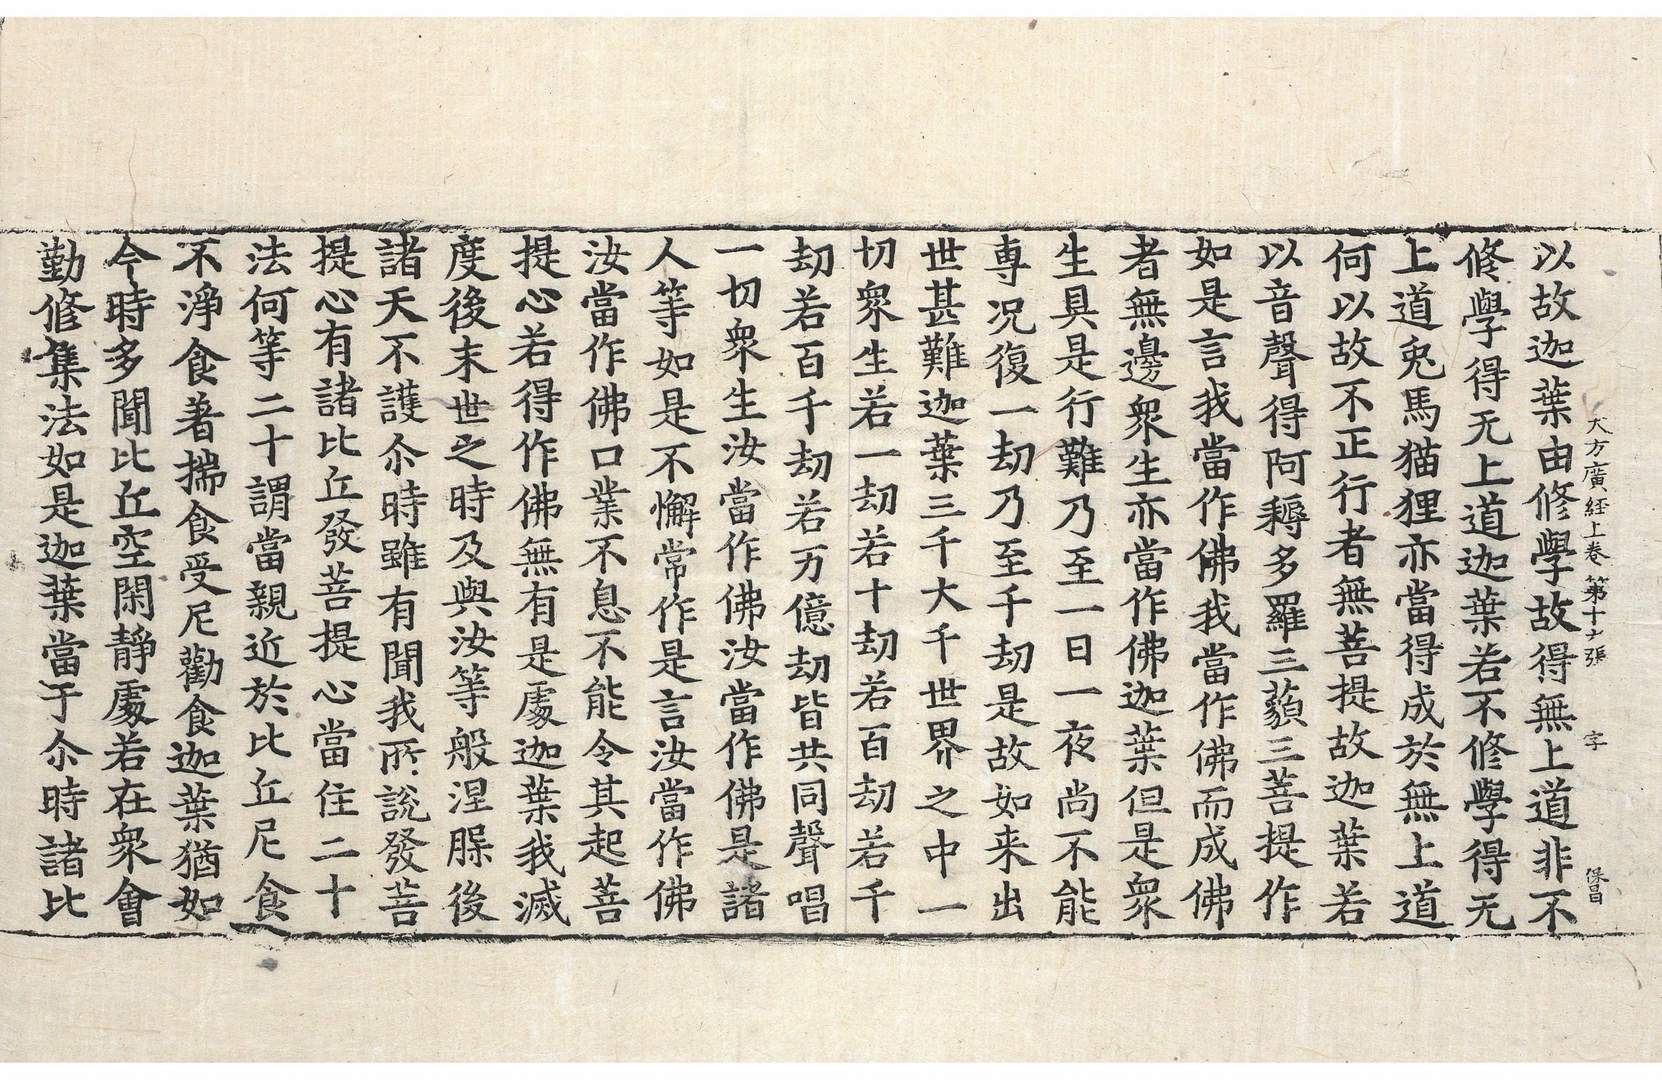 大方廣経上卷 第十六張 字 保昌
以故迦葉由修學故得無上道非不
修學得无上道迦葉若不修學得无
上道兎馬猫狸亦當得成於無上道
何以故不正行者無菩提故迦葉若
以音聲得阿耨多羅三藐三菩提作
如是言我當作佛我當作佛而成佛
者無邊衆生亦當作佛迦葉但是衆
生具是行難乃至一日一夜尚不能
專况復一劫乃至千劫是故如来出
世甚難迦葉三千大千世界之中一
切衆生若一劫若十劫若百劫若千
劫若百千劫若万億劫皆共同聲唱
一切衆生汝當作佛汝當作佛是諸
人等如是不懈常作是言汝當作佛
汝當作佛口業不息不能令其起菩
提心若得作佛無有是處迦葉我滅
度後末世之時及與汝等般涅脵後
諸天不護尒時雖有聞我所說發菩
提心有諸比丘發菩提心當住二十
法何等二十謂當親近於比丘尼食
不淨食著揣食受尼勸食迦葉猶如
今時多聞比丘空閑靜處若在衆會
勤修集法如是迦葉當于尒時諸比